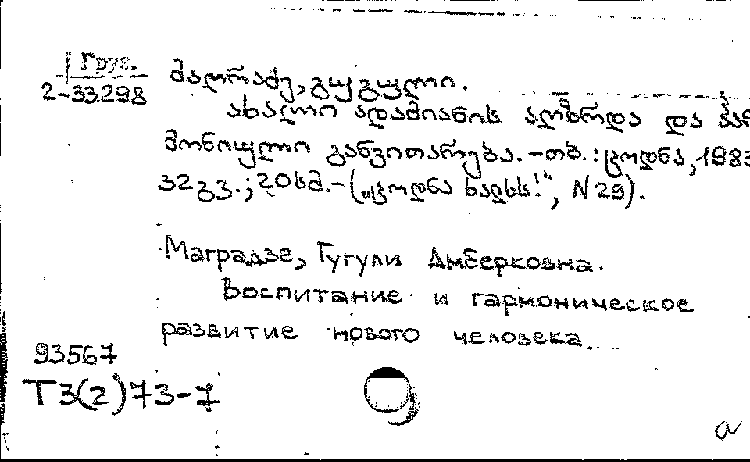 Груз.
2-33.298
მაღრაძე, გუგული.
ახალი ადამიანის აღზრდა და ჰარ
მონიული განვითარება. -თბ.: ცოდნა, 1983
32გვ.; 20სმ. - („ცოდნა ხალხს!“, N 29).
Маградзе, Гугули Амберковна.
Воспитание и гармоническое
развитие нового человека.
93567
Т3(2)73-7
a